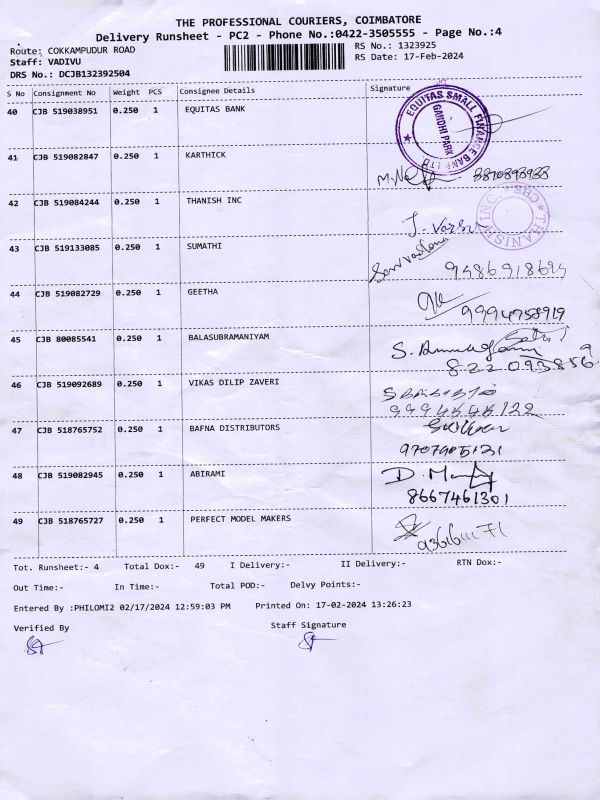 THE PROFESSIONAL COURIERS, COIMBATORE
Delivery Runsheet - PC2 - Phone No.:0422-3505555 - Page No.:4
Route: COKKAMPUDUR ROAD
RS No.: 1323925
Staff: VADIVU
RS Date: 17-Feb-2024
DRS No.: DCJB132392504
S No Consignment No Weight PCS Consignee Details Signature
40 CJB 519038951 0.250 1 EQUITAS BANK
EQUITAS SMALL FINANCE BANK LTD
GANDHI PARK
41 CJB 519082847 0.250 1 KARTHICK
42 CJB 519084244 0.250 1 THANISH INC
43 CJB 519133085 0.250 1 SUMATHI
44 CJB 519082729 0.250 1 GEETHA
9994758919
45 CJB 80085541 0.250 1 BALASUBRAMANIYAM
46 CJB 519092689 0.250 1 VIKAS DILIP ZAVERI
47 CJB 518765752 0.250 1 BAFNA DISTRIBUTORS
48 CJB 519082945 0.250 1 ABIRAMI
8667461301
49 CJB 518765727 0.250 1 PERFECT MODEL MAKERS
Tot. Runsheet:- 4 Total Dox:- 49 I Delivery:- II Delivery:- RTN Dox:-
Out Time:- In Time:- Total POD:- Delvy Points:-
Entered By :PHILOMI2 02/17/2024 12:59:03 PM Printed On: 17-02-2024 13:26:23
Verified By Staff Signature